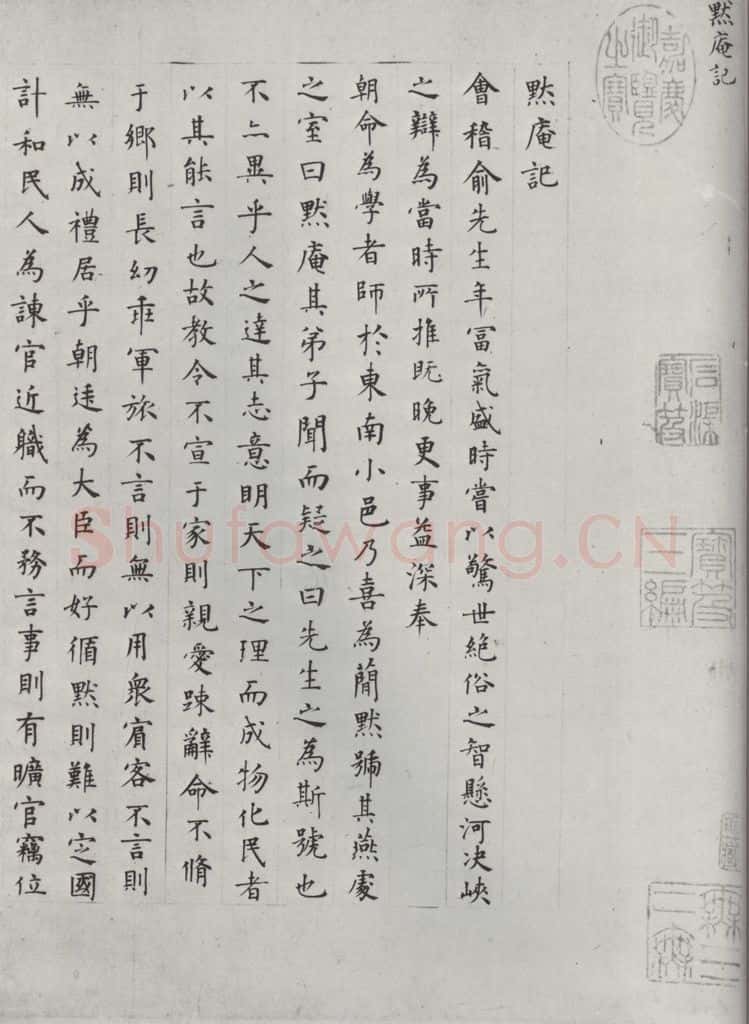 默庵記
嘉慶御覽之寶
默庵記
會稽俞先生年冨氣盛時嘗以驚世絕俗之智懸河決峽
之辯為當時所推既晚更事益深奉
朝命為學者師於東南小邑乃喜為簡默號其燕處
之室曰默庵其弟子聞而疑之曰先生之為斯號也
不亦異乎人之達其志意明天下之理而成物化民者
以其能言也故教令不宣于家則親愛踈辭命不脩
于鄉則長幼乖軍旅不言則無以用衆賔客不言則
無以成禮居乎朝廷為大臣而好循默則難以定國
計和民人為諫官近職而不務言事則有曠官竊位
石渠寶笈
寶笈三編
Shufawang.CN